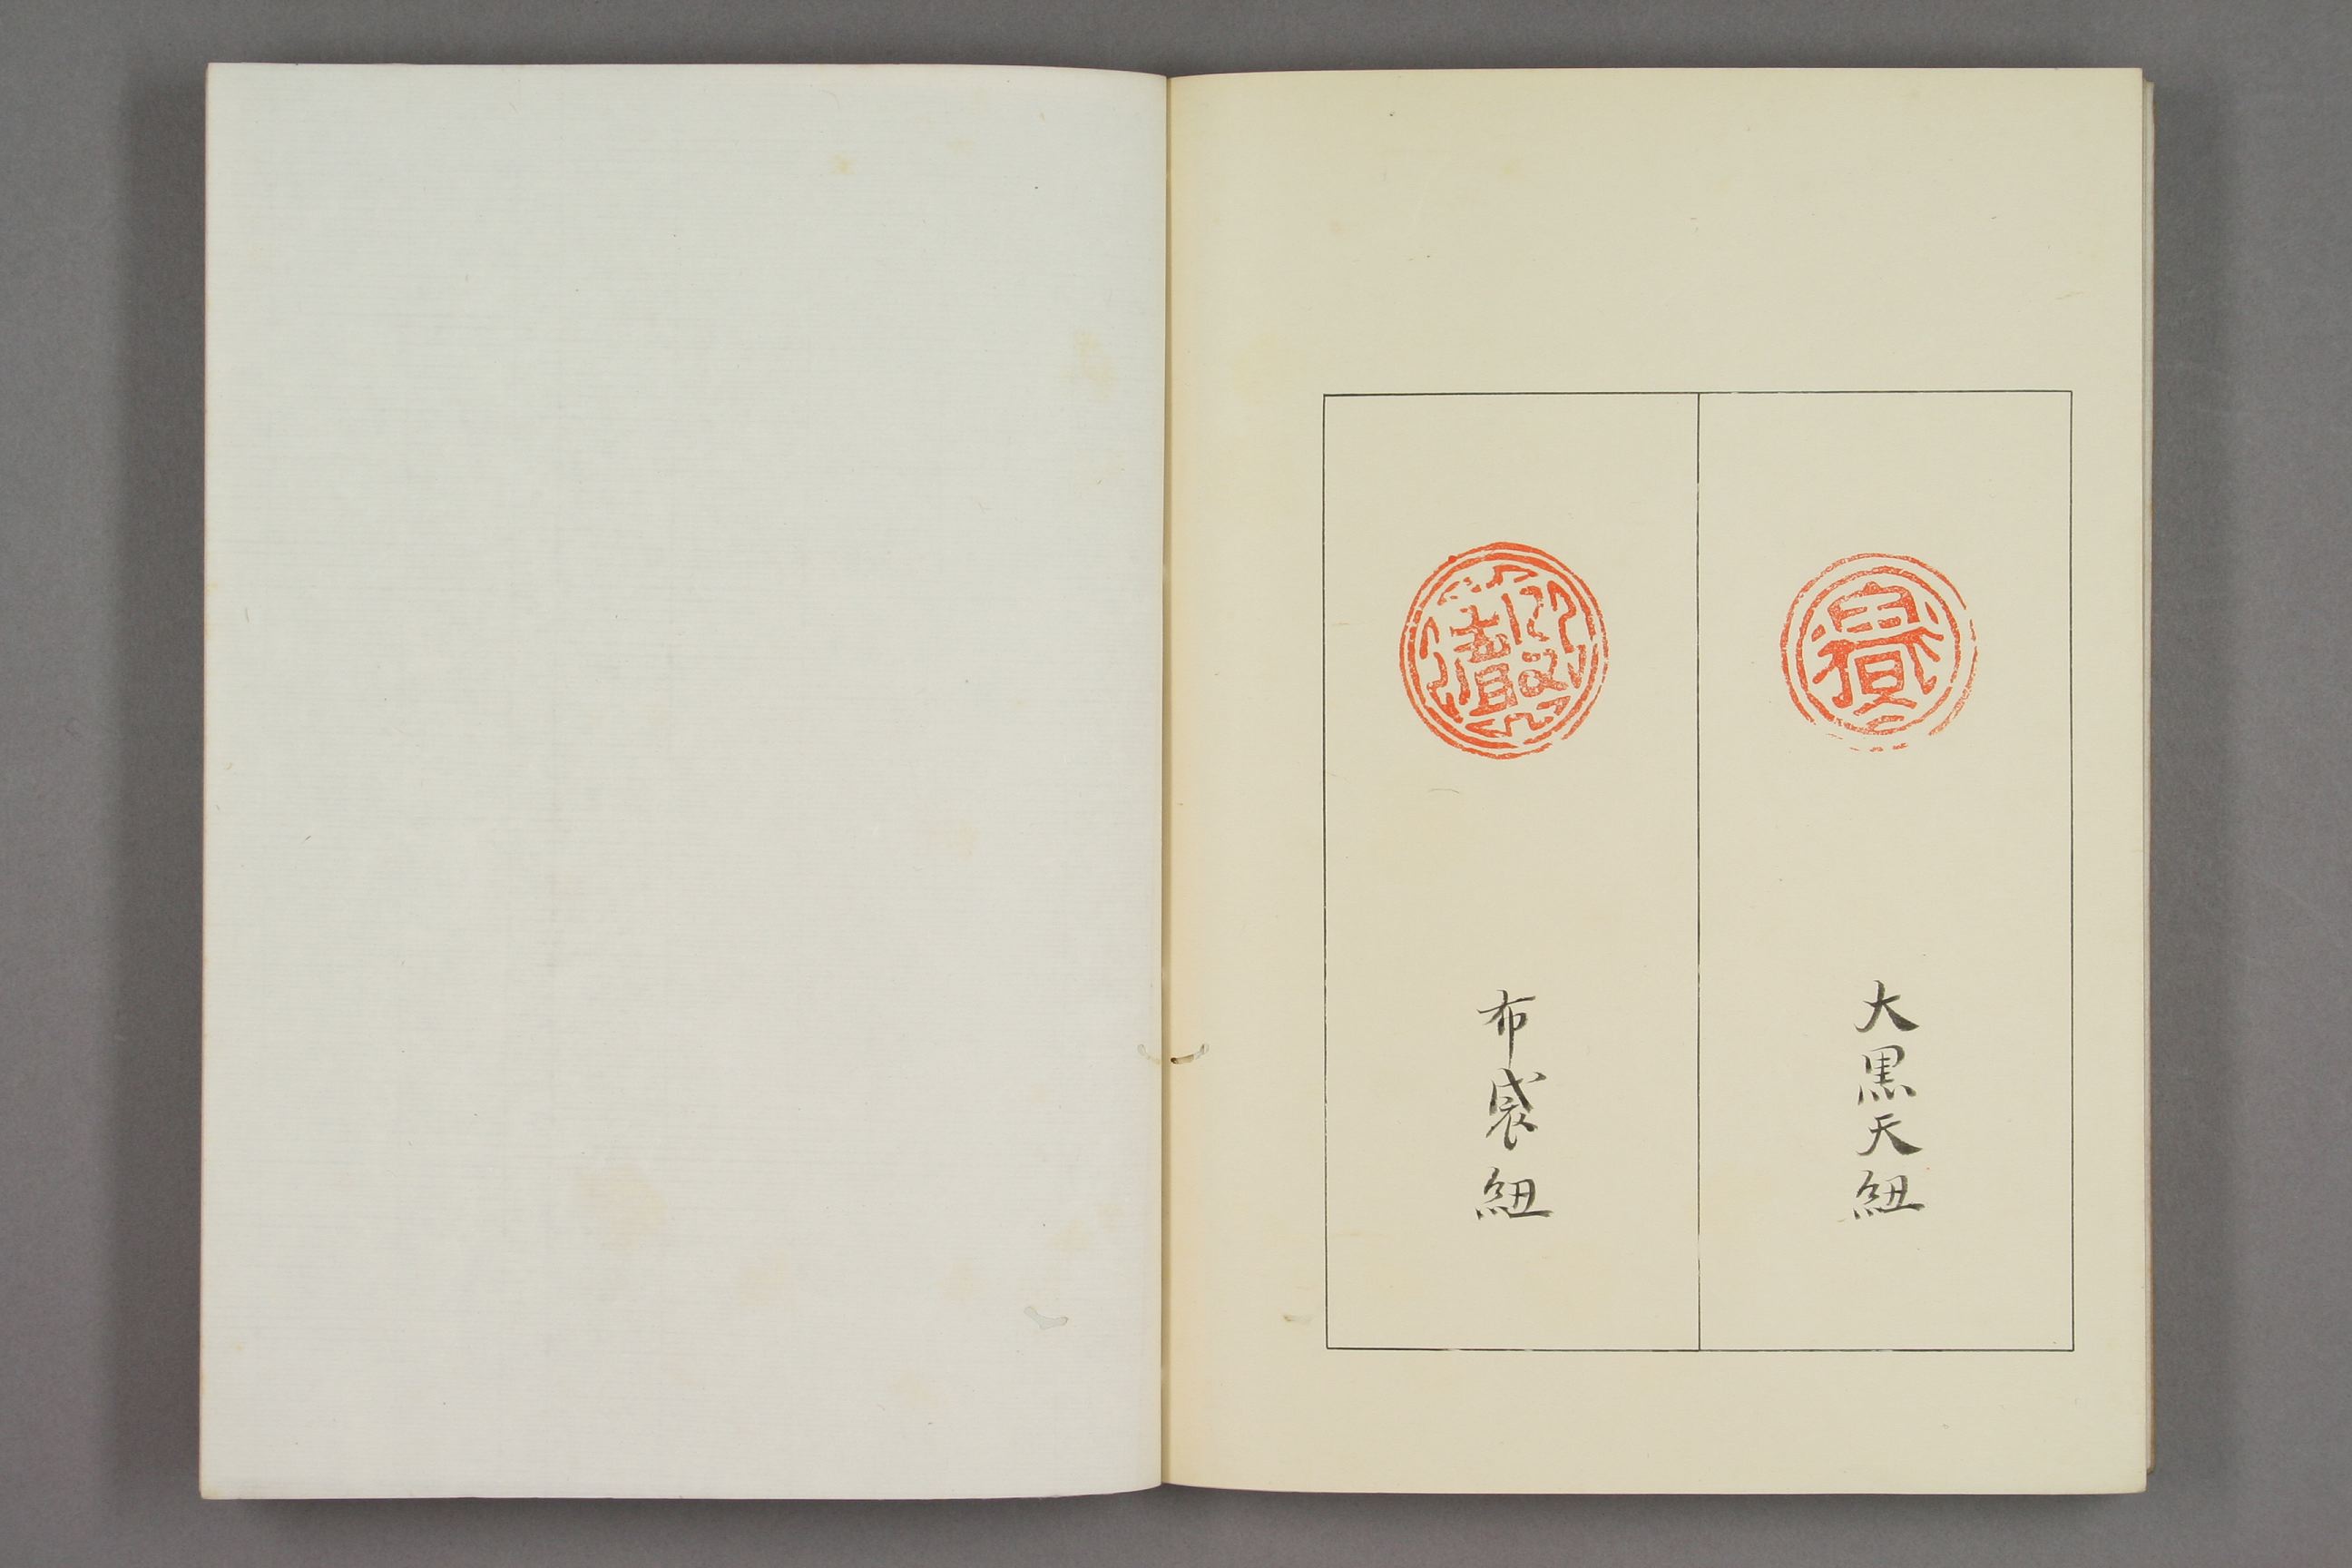 大黒天紐
布袋紐